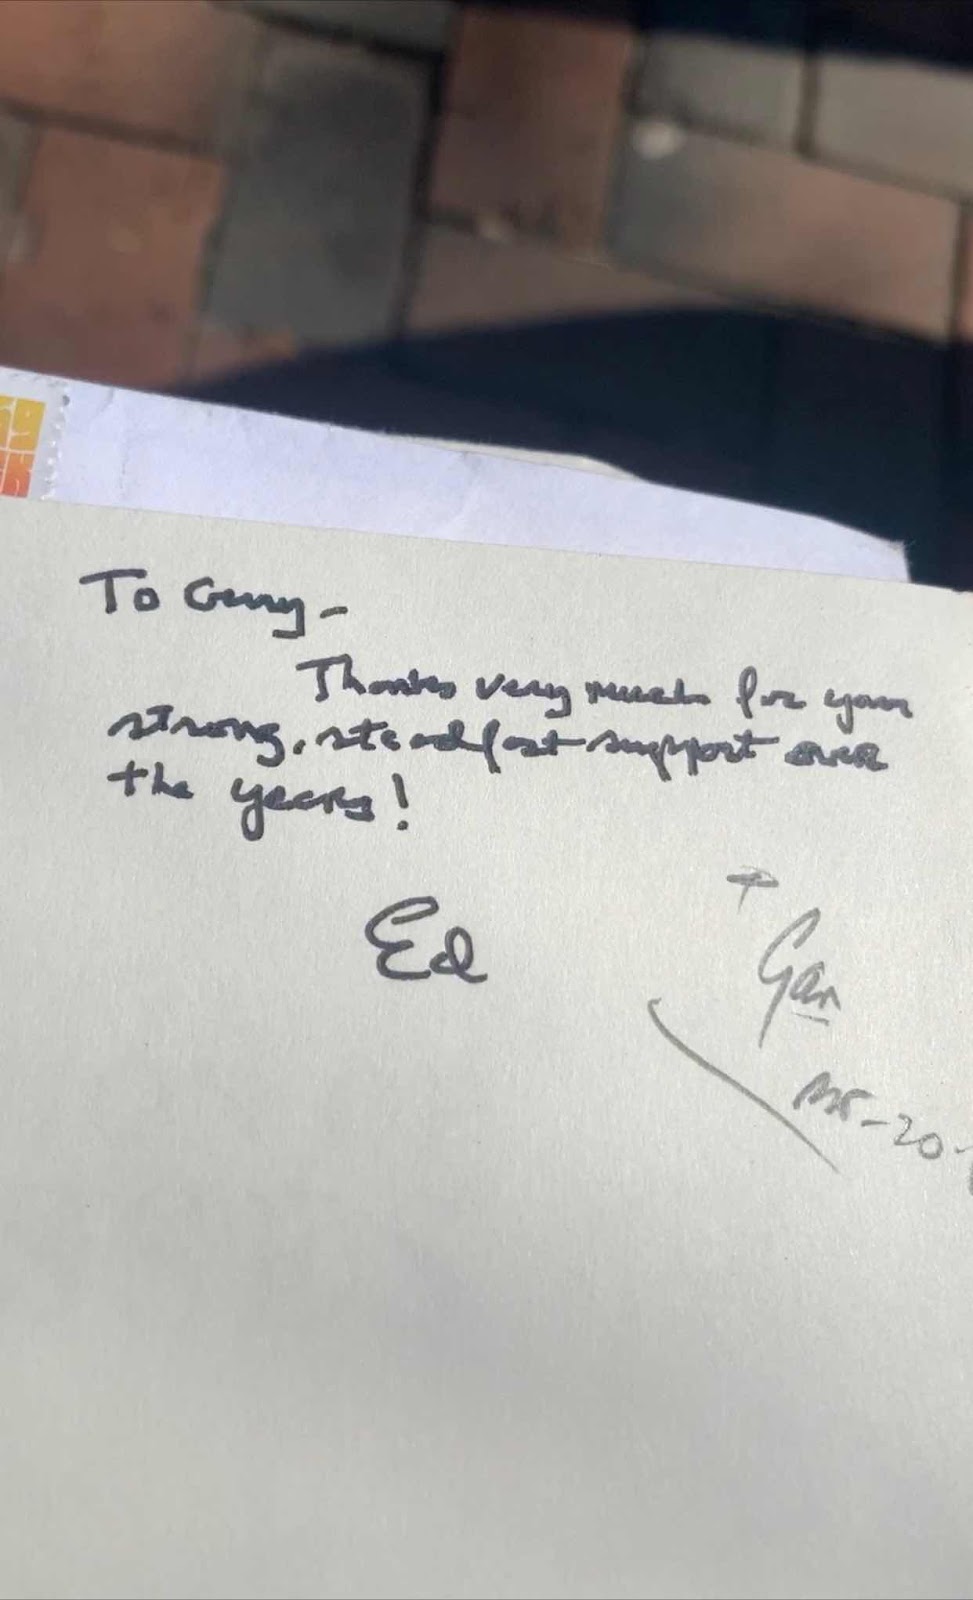 To Gerry -
Thanks very much for your
strong, steadfast support over
the years!
Ed
+
Gan
-20